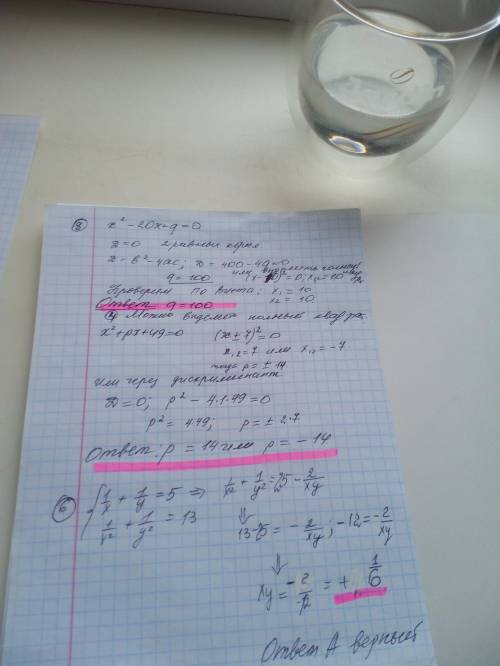 ② x² - 20x + q = 0
D = 0 2 равных корня
D = b² - 4ac; D = 400 - 4q = 0
q = 100 или (x - 10)² = 0; x₁,₂ = 10
Проверим по Виета: x₁ = 10
x₂ = 10
Ответ q = 100
Можно выделить полный квадрат
x² + px + 49 = 0 (x ± 7)² = 0
x₁,₂ = 7 или x₁,₂ = -7
тогда p = ± 14
Или через дискриминант
D = 0; p² - 4·1·49 = 0
p² = 4·49; p = ± 2·7
Ответ: p = 14 или p = -14
⑥ { 1/x + 1/y = 5 ⇒ 1/x² + 1/y² = 25 - 2/xy
1/x² + 1/y² = 13 ⇓ 13 - 25 = - 2/xy; -12 = - 2/xy
⇓
xy = -2/-12 = + 1/6
Ответ А верный